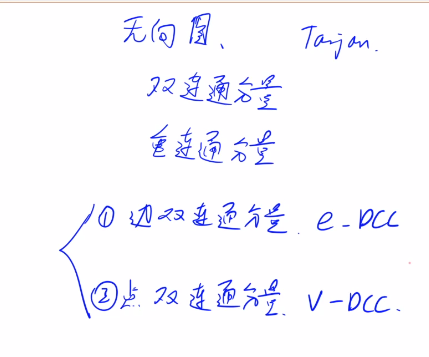 无向图、 Tarjan.
双连通分量
重连通分量
① 边双连通分量. e-DCC
② 点双连通分量. V-DCC.